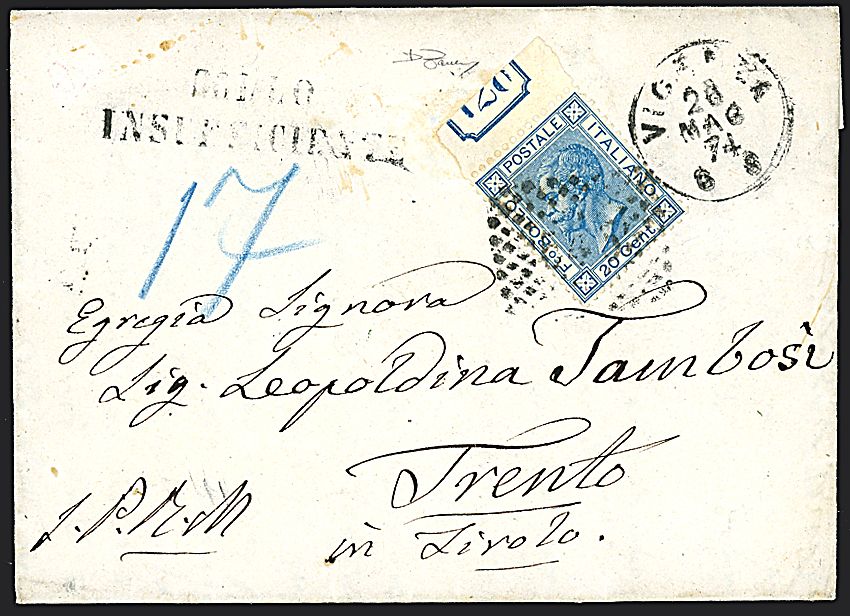 BOLLO
INSUFFICIENTE
17
120
Fco BOLLO POSTALE ITALIANO
20 Cent.
VICENZA
28
MAG
74
6 S
Egregia Signora
Sig. Leopoldina Tambosi
Trento
in Tirolo.